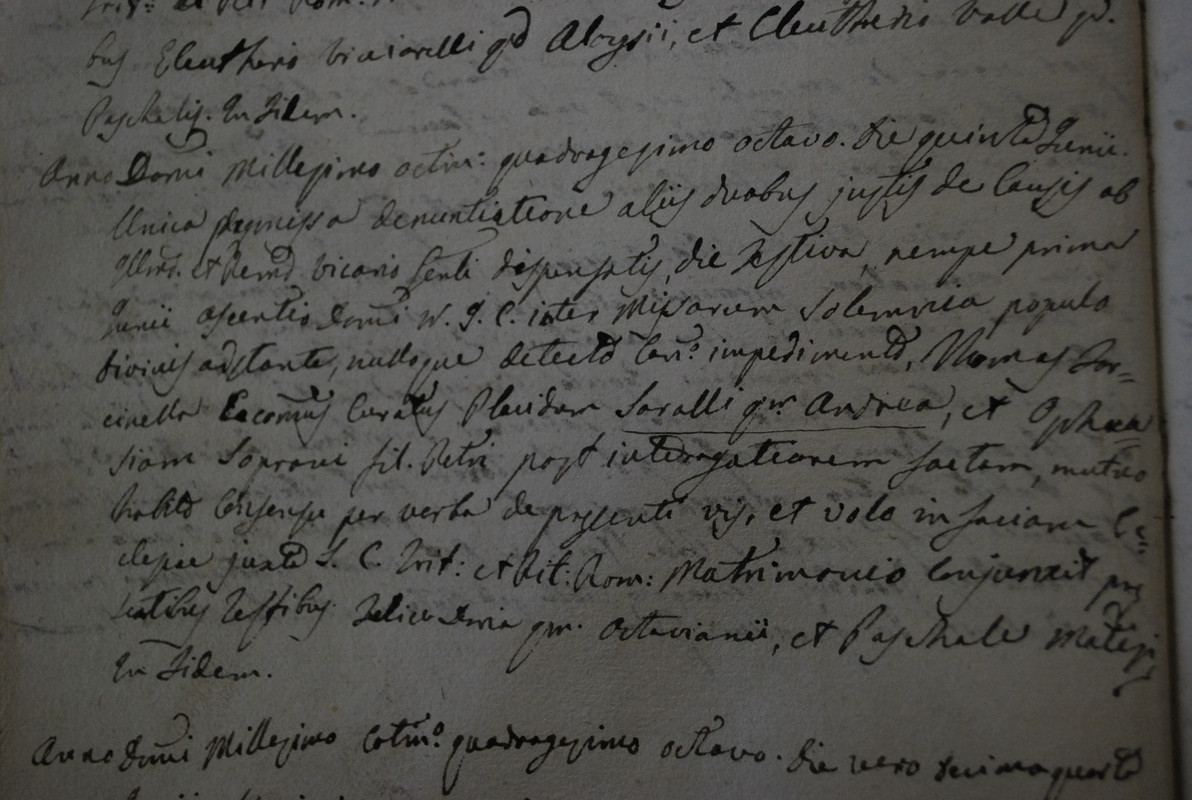 bus Eleutherio Bucciarelli qd Aloysii, et Eleutherio Valle qd.
Paschalis. In Fidem.
Anno Domi Millesimo octin: quadragesimo octavo. Die quinta Junii.
Unica premissa denuntiatione aliis duobus justis de Causis ab
Illmo. et Remo Vicario Genli dispensatis, die Festiva, nempe prima
Junii Ascentio Domi N. J. C. inter Missarum Solemnia populo
divinis adstante, nulloque detecto Can:o impedimento, Thomas For=
cinella Economus Curatus Placidum Saralli qm Andrea, et Ophra=
siam Soprani fil. Petri post interrogationem factam, mutuo
habito Consensu per verba de presenti vis, et volo in faciam Ec=
clesiae juxta S. C. Trit: et Rit: Rom: Matrimonio Conjunxit pre
sentibus Testibus Felice qm. Octavianii, et Paschale
In Fidem.
Anno Domi Millesimo octin:o quadragesimo octavo. Die vero decimaquarta